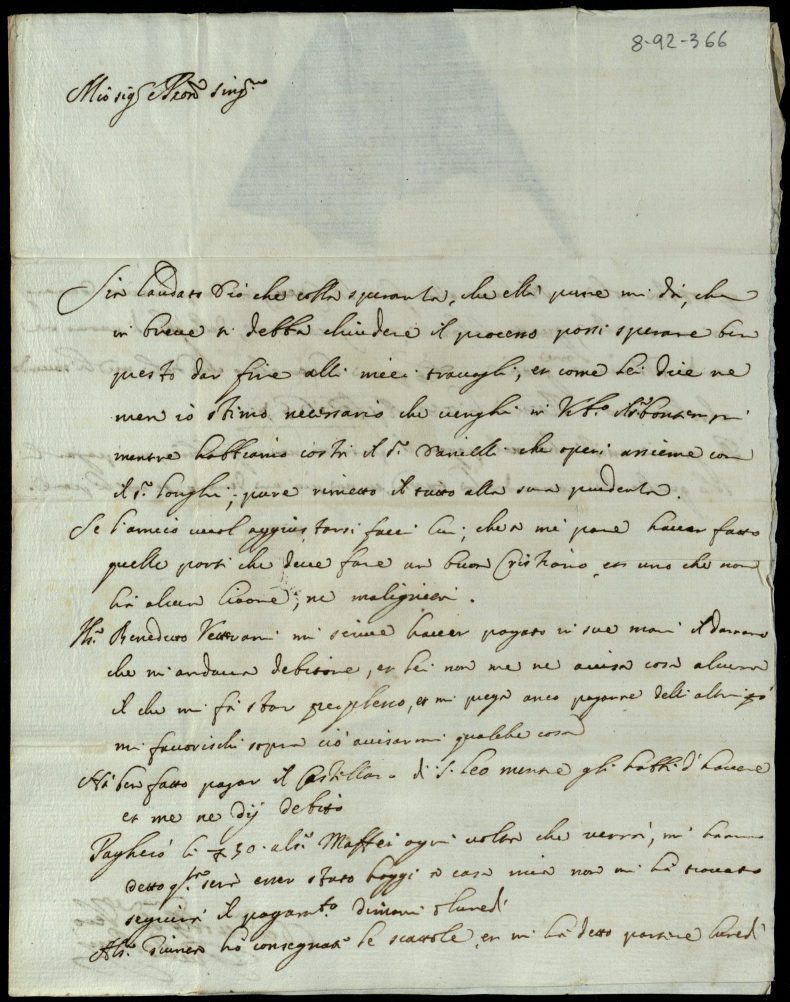 8-92-366
Mio sig.r e Pron sing.mo
Sia laudato Dio che colla speranza, che ella pure mi dà, che
in breve si debba chiudere il processo possi sperare ben
presto dar fine alli miei travagli, et come lei dice ne
men io stimo necessario che venghi in
mentre habbiamo costì il s.r Danielli che operi assieme con
il s.r Longhi; pure rimetto il tutto alla sua prudenza.
Se l'amico vuol aggiustarsi facci lui; che a me pare haver fatto
quelle parti che deve fare un buon Cristiano, et uno che non
ha alcun livore, ne malignità.
Benedetto Vetterani mi scrive haver pagato in sue mani il danaro
che mi andava debitore, et lei non me ne avisa cosa alcuna
il che mi fà star perplesso, et mi prega anco pagarne delli altri
mi favorischi sopra ciò avisarmi qualche cosa
Hà ben fatto pagar il Castellano di S. Leo mentre gli habbi d'havere
et me ne dij debito
Pagherò li 30 al s.r Maffei ogni volta che verrà, mi hanno
detto q.sta sera esser stato hoggi a casa mia non mi hà trovato
seguirà il pagam.to dimani o lunedì
Al s.r hò consegnato le scattole, et mi hà detto partire lunedì